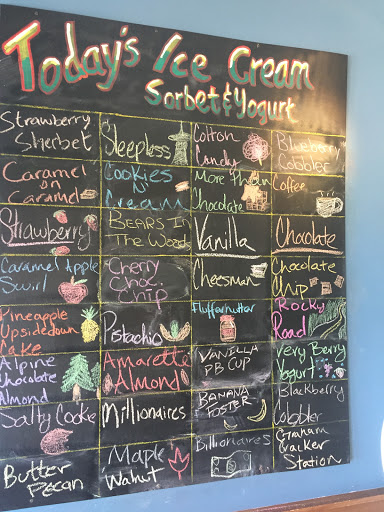 Today's Ice Cream
Sorbet & Yogurt
Strawberry
Sherbet
Sleepless
Cotton
Candy
Blueberry
Cobbler
Caramel
on
Caramel
Cookies
N'
Cream
More than
Chocolate
Coffee
Strawberry
BEARS IN
The Woods
Vanilla
Chocolate
Caramel Apple
Swirl
Cherry
Choc.
Chip
Cheesman
Chocolate
Chip
Pineapple
Upsidedown
Cake
Pistachio
Fluffernutter
Rocky
Road
Alpine
Chocolate
Almond
Amaretto
Almond
VANILLA
PB CUP
Very Berry
Yogurt
Salty Cookie
Millionaires
BANANA
FOSTER
Blackberry
Cobbler
Butter
Pecan
Maple
Walnut
Billionaires
Graham
Cracker
Station